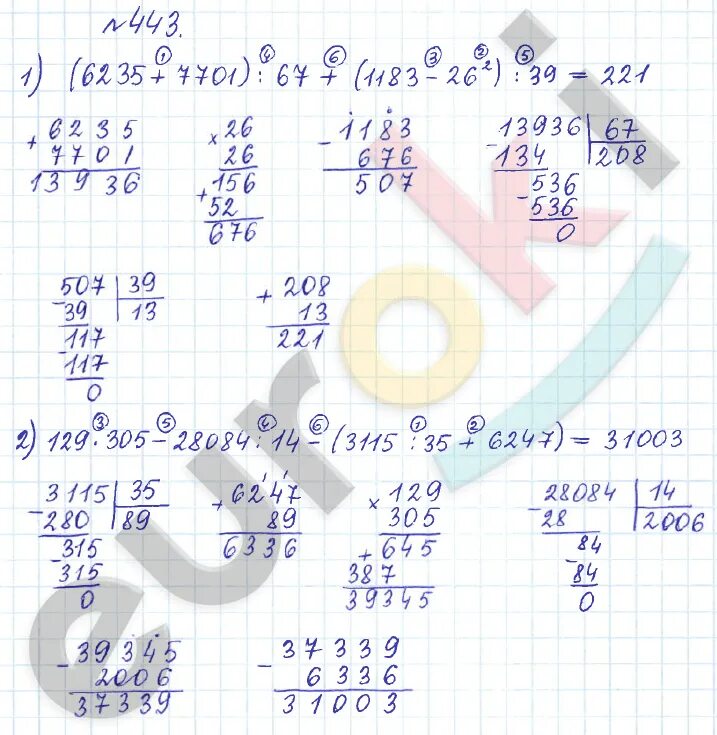 №443.
1) (6235 + 7701) : 67 + (1183 − 26²) : 39 = 221
① ④ ⑥ ③ ② ⑤
+ 6235
7701
13936
× 26
26
+ 156
52
676
− 1183
676
507
− 13936 | 67
134 | 208
− 536
536
0
− 507 | 39
39 | 13
− 117
117
0
+ 208
13
221
2) 129 · 305 − 28084 : 14 − (3115 : 35 + 6247) = 31003
③ ⑤ ④ ⑥ ① ②
− 3115 | 35
280 | 89
− 315
315
0
+ 6247
89
6336
× 129
305
+ 645
387
39345
− 28084 | 14
28 | 2006
− 84
84
0
− 39345
2006
37339
− 37339
6336
31003
euroki